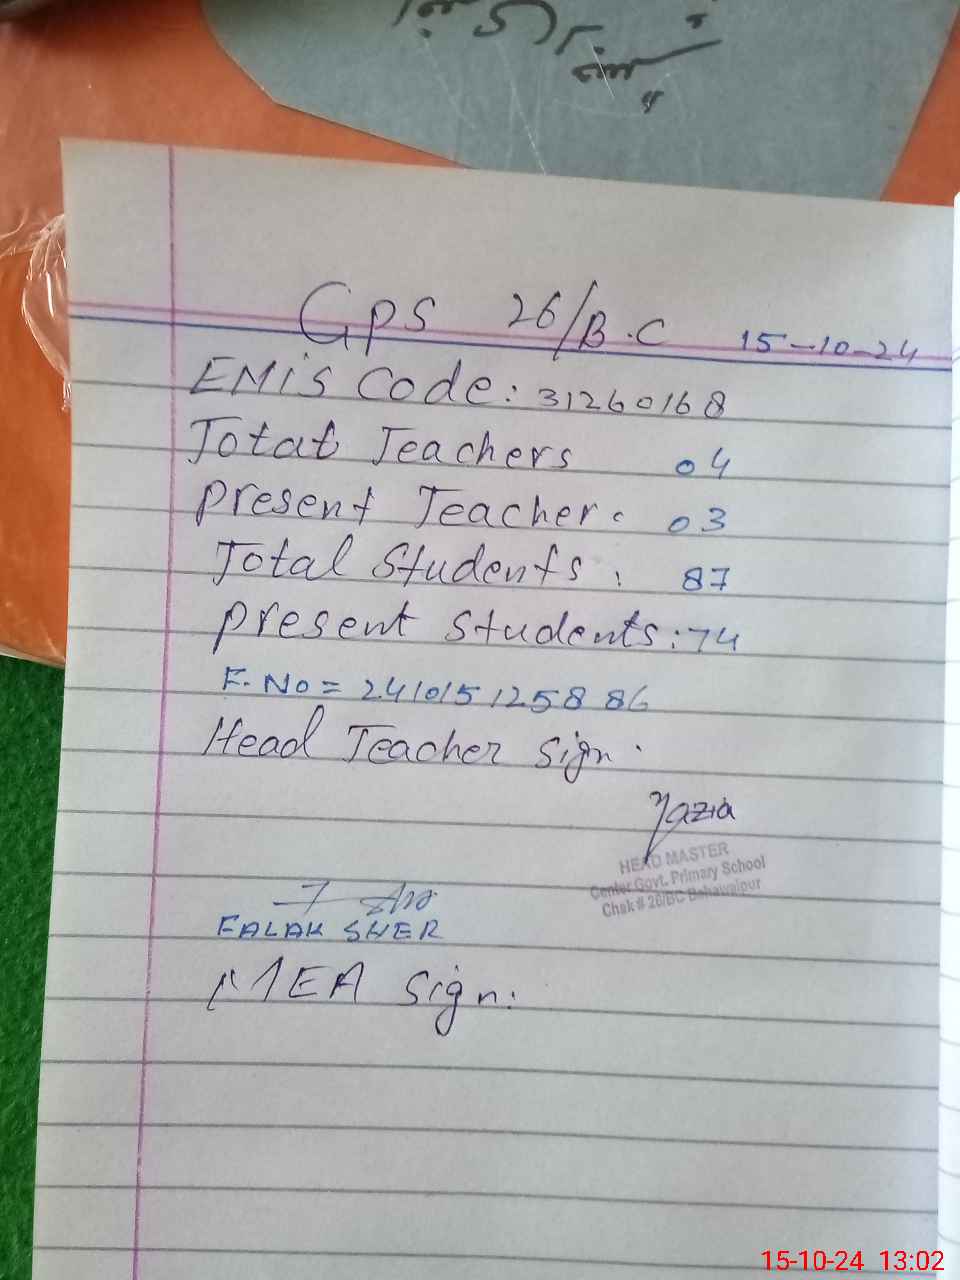 GPS 26/B.C 15-10-24
EMiS Code: 31260168
Total Teachers 04
Present Teacher: 03
Total Students: 87
Present Students: 74
F. No = 241015125886
Head Teacher Sign:
HEAD MASTER
Center Govt. Primary School
Chak # 26/BC Bahawalpur
FALAK SHER
MEA Sign:
15-10-24 13:02